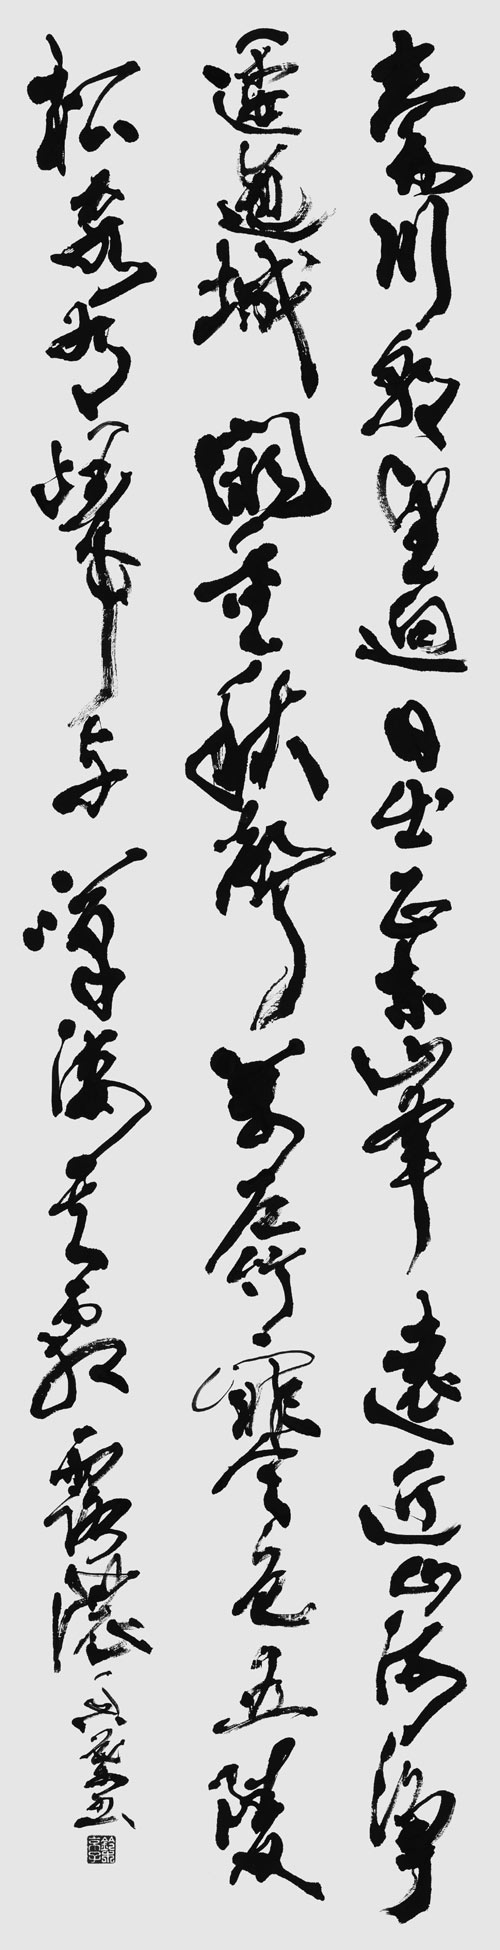 秦川朝望迥日出正東峯遠近山河淨
逶迤城闕重秋聲萬戶竹寒色五陵
松客有歸与嘆凄其霜露濃